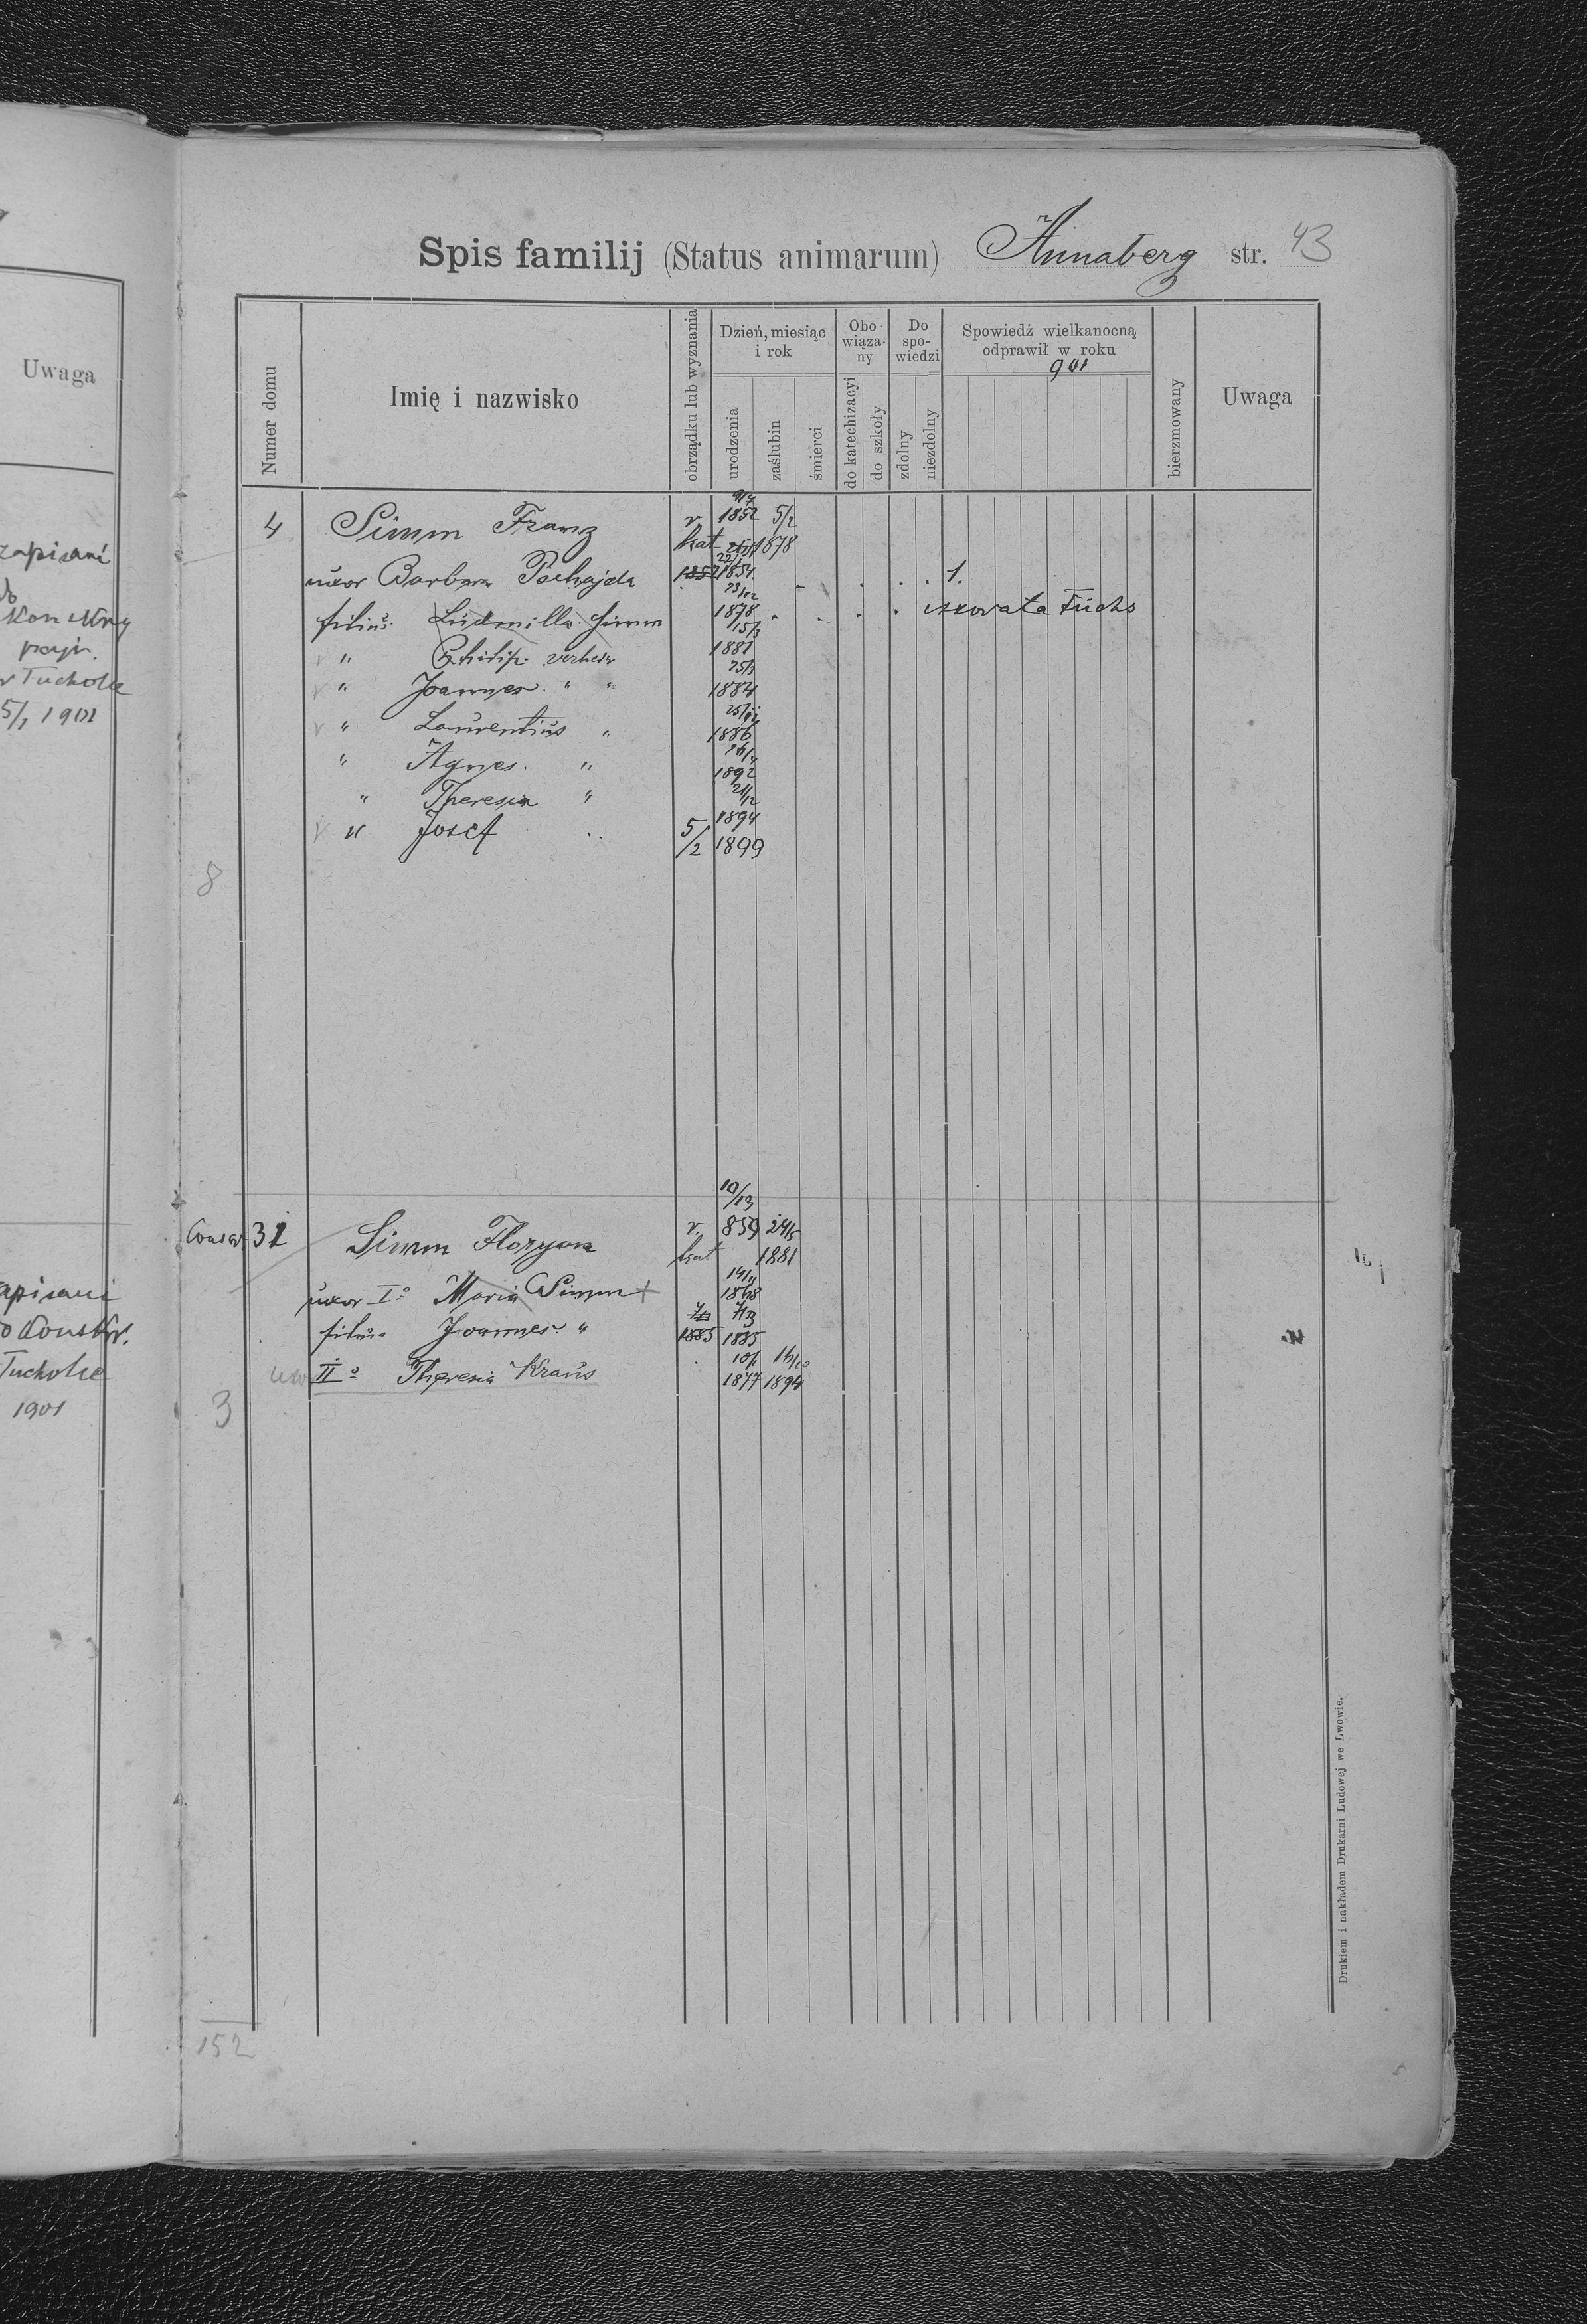 Uwaga
zapisani
do
Kon
w Tucholce
5/1 1901
zapisani
do Konskr.
Tucholce
1901
Spis familij (Status animarum) Annaberg str. 43
Numer domu
Imię i nazwisko
obrządku lub wyznania
Dzień, miesiąc
i rok
urodzenia
zaślubin
śmierci
Obo
wiąza-
ny
do katechizacyi
do szkoły
Do
spo-
wiedzi
zdolny
niezdolny
Spowiedź wielkanocną
odprawił w roku
901
bierzmowany
Uwaga
4 Simm Franz r. 1852 5/2
kat 1878
uxor Barbara 1852 1854 1.
23/12
filius Ludmilla Simm 1878 Fuchs
15/3
" Philip. 1881
25/3
" Joannes " " 1884
" Laurentius " 1886
" Agnes. " 1892
21/12
" Theresia " 1894
" Josef " 5/2 1899
8
10/13
31 Simm Floryan r. 859 24/5
kat 1881
uxor I° Maria Simm + 1868
filius Joannes " 1885 1885
uxor II° Theresia Kraus 1877 1894
16/10
3
152
Drukiem i nakładem Drukarni Ludowej we Lwowie.